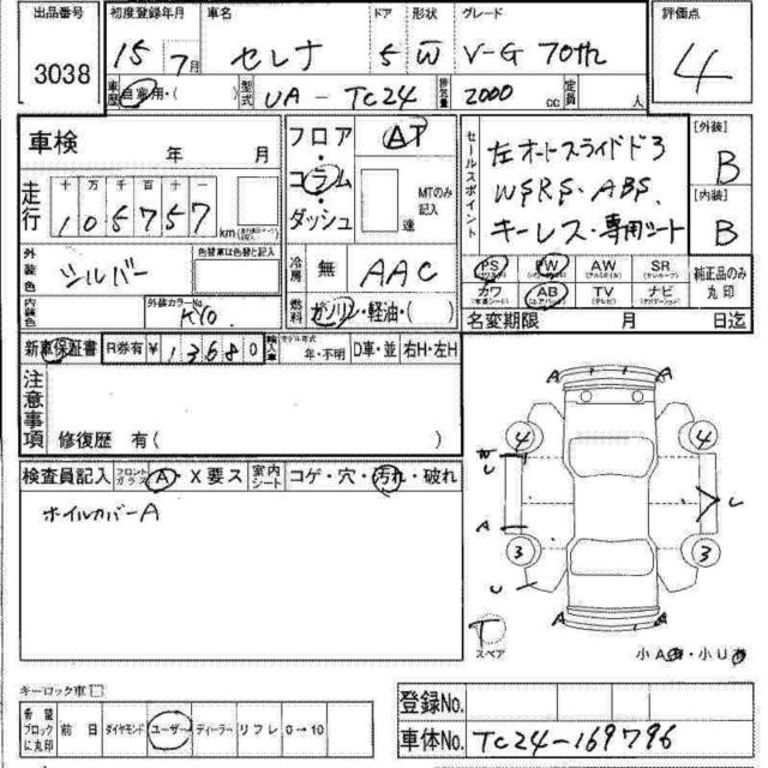 出品番号 初度登録年月 車名 ドア 形状 グレード 評価点
3038 15 7月 セレナ 5 W V-G 70th 4
車歴 自家用・( ) 型式 UA-TC24 排気量 2000 cc 定員 人
車検 年 月
走行 十 万 千 百 十 一
105757 km
外装色 シルバー 色替車は色替と記入
内装色 外装カラーNo. KY0.
フロア・コラム・ダッシュ AT
MTのみ記入 速
冷房 無 AAC
燃料 ガソリン・軽油・( )
セールスポイント
左オートスライドドア
WSRS・ABS
キーレス・専用シート
[外装] B
[内装] B
PS PW AW SR 純正品のみ丸印
カワ AB TV ナビ
名変期限 月 日迄
新車保証書 R券有 ¥ 13680 輸入車 モデル年式 年・不明 D車・並 右H・左H
注意事項
修復歴 有( )
検査員記入 フロントガラス A・X要ス 室内シート コゲ・穴・汚れ・破れ
ホイルカバーA
A A
4 4
U
U
A
3 3
U
A A
T
スペア
小A・小U
キーロック車
希望ブロックに丸印 前日 ダイヤモンド ユーザー ディーラー リフレ 0→10
登録No.
車体No. TC24-169796